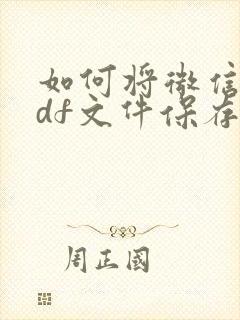 如何将微信
df文件保存
周正國